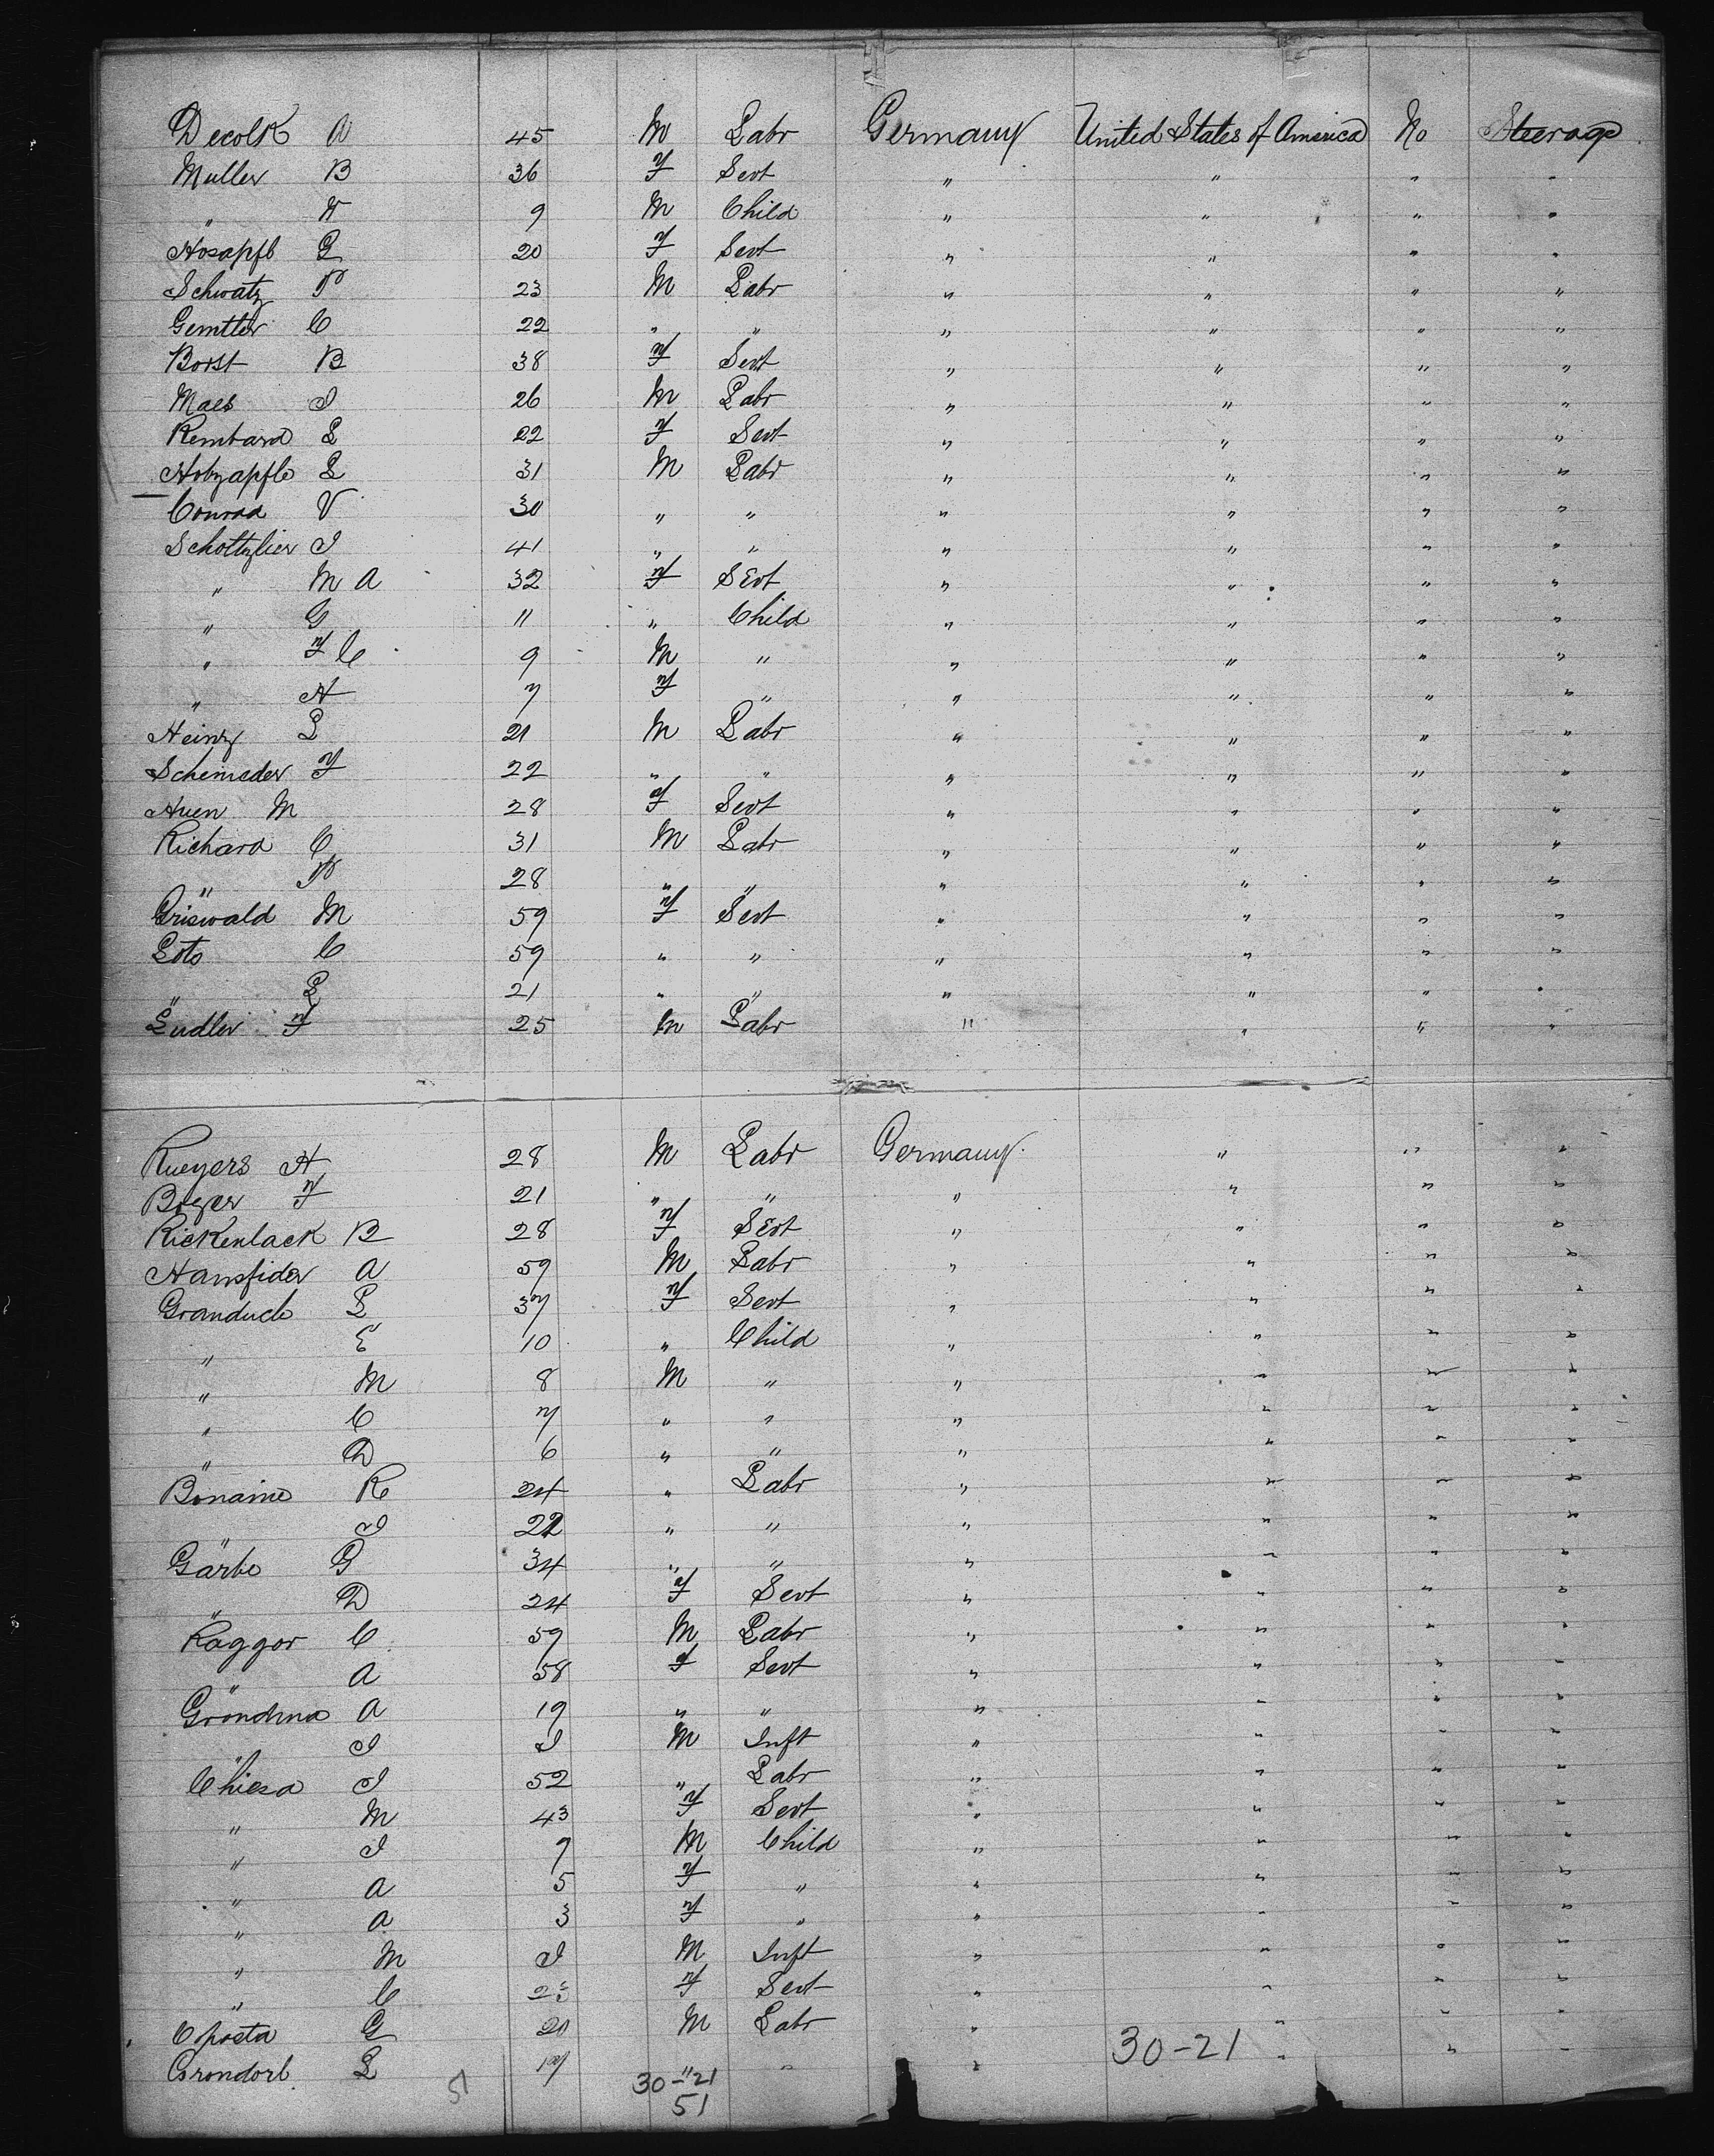 Decolk A 45 M Labr Germany United States of America No Steerage
Muller B 36 F Sevt " " " "
" F 9 M Child " " " "
Hosapfl G 20 F Sevt " " " "
Schwatz P 23 M Labr " " " "
Gemtler C 22 " " " " " "
Borst B 38 F Sevt " " " "
Maes J 26 M Labr " " " "
Rembard L 22 F Sevt " " " "
Hobzapfle L 31 M Labr " " " "
Conrad V 30 " " " " " "
Schottzlier J 41 " " " " " "
" M A 32 F Sevt " " " "
" G 11 " Child " " " "
" F C 9 M " " " " "
" H 7 F " " " " "
Heinz L 21 M Labr " " " "
Schemeder F 22 " " " " " "
Huen M 28 F Sevt " " " "
Richard C 31 M Labr " " " "
" P 28 " " " " " "
Griswald M 59 F Sevt " " " "
Lots C 59 " " " " " "
" L 21 " " " " " "
Ludler F 25 M Labr " " " "
Rueyers H 28 M Labr Germany " " "
Boyer F 21 " " " " " "
Rickenlack B 28 F Sevt " " " "
Hansfider A 59 M Labr " " " "
Granduch L 37 F Sevt " " " "
" E 10 " Child " " " "
" M 8 M " " " " "
" C 7 " " " " " "
" D 6 " " " " " "
Boname R 24 " Labr " " " "
" J 22 " " " " " "
Garbe G 34 " " " " " "
" D 24 F Sevt " " " "
Raggor C 59 M Labr " " " "
" A 58 F Sevt " " " "
Grondma A 19 " " " " " "
" J I M Inft " " " "
Chiesa J 52 " Labr " " " "
" M 43 F Sevt " " " "
" J 9 M Child " " " "
" A 5 F " " " " "
" A 3 F " " " " "
" M I M Inft " " " "
" C F Sevt " " " "
Cposta G 20 M Labr " " " "
Grondorl L 17 " " " " " "
30-21
51 30-21
51